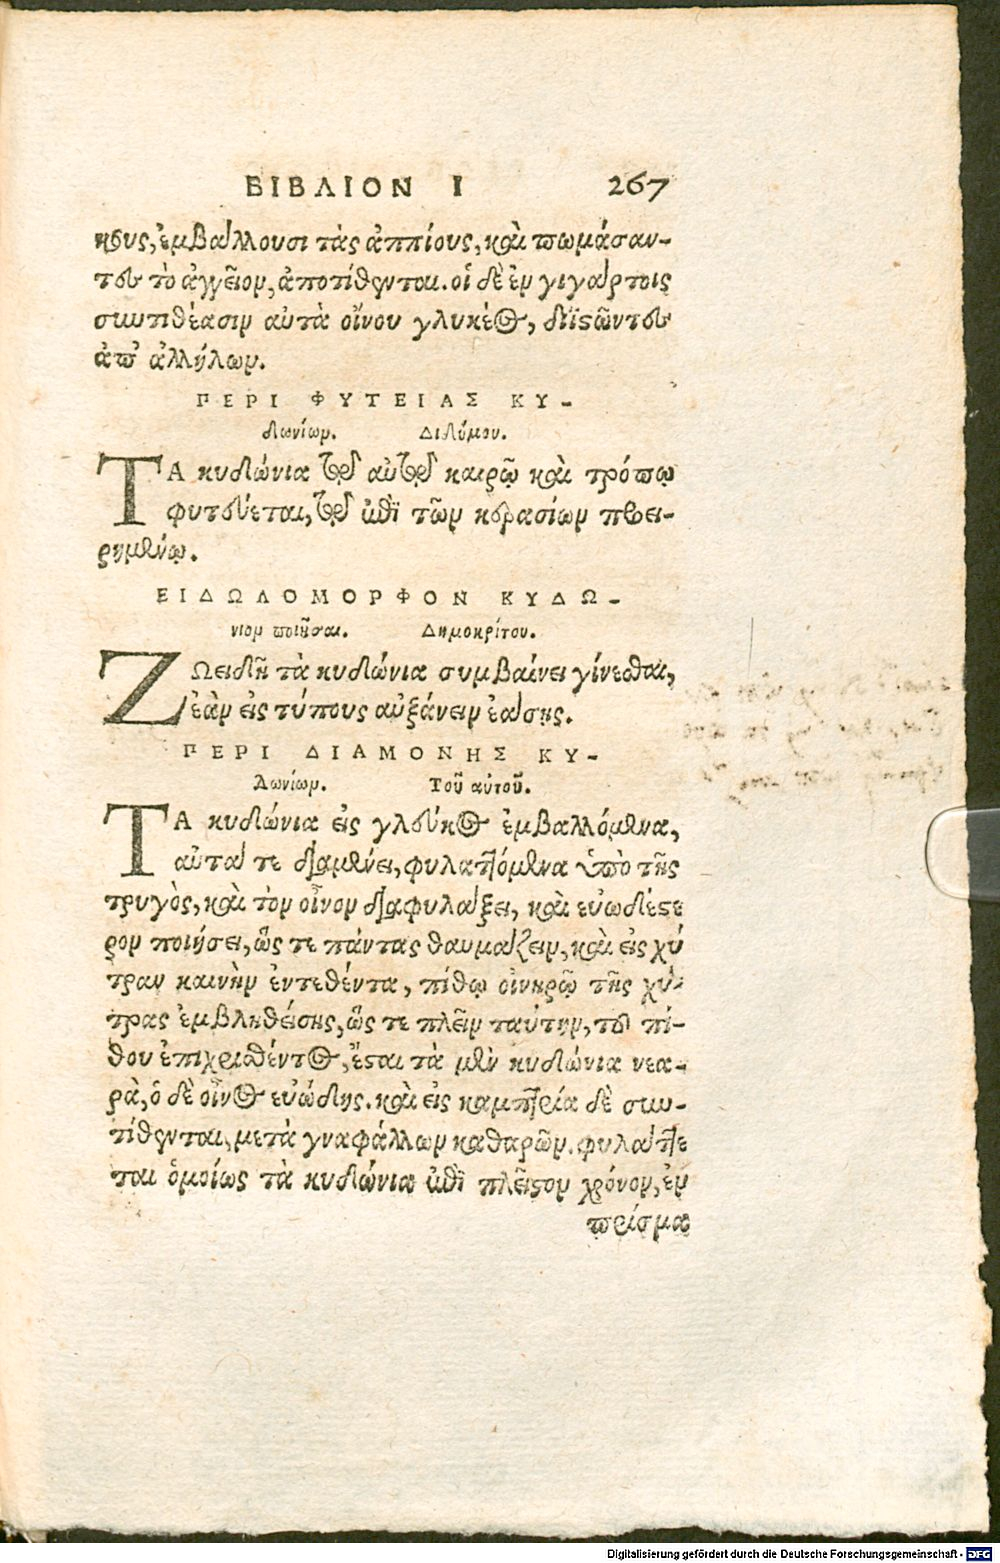 ΒΙΒΛΙΟΝ Ι 267
κους, ἐμβάλλουσι τὰς ἀππίους, καὶ πωμάσαν-
τες τὸ ἀγγεῖον, ἀποτίθενται. οἱ δὲ ἐν γιγάρτοις
συντιθέασιν αὐτὰ οἴνου γλυκέος, διϊστῶντες
ἀπ' ἀλλήλων.
ΠΕΡΙ ΦΥΤΕΙΑΣ ΚΥ-
δωνίων. Διδύμου.
ΤΑ κυδώνια τῷ αὐτῷ καιρῷ καὶ τρόπῳ
φυτεύεται, τῷ ἐπὶ τῶν κερασίων προει-
ρημένῳ.
ΕΙΔΩΛΟΜΟΡΦΟΝ ΚΥΔΩ-
νιον ποιῆσαι. Δημοκρίτου.
ΖΩειδῆ τὰ κυδώνια συμβαίνει γίνεσθαι,
ἐὰν εἰς τύπους αὐξάνειν ἐάσῃς.
ΠΕΡΙ ΔΙΑΜΟΝΗΣ ΚΥ-
δωνίων. Τοῦ αὐτοῦ.
ΤΑ κυδώνια εἰς γλεύκος ἐμβαλλόμενα,
αὐτά τε διαμένει, φυλαττόμενα ὑπὸ τῆς
τρυγὸς, καὶ τὸν οἶνον διαφυλάξει, καὶ εὐωδέστε
ρον ποιήσει, ὥς τε πάντας θαυμάζειν, καὶ εἰς χύ
τραν καινὴν ἐντεθέντα, πίθῳ οἰνηρῷ τῆς χύ-
τρας ἐμβληθείσης, ὥς τε πλεῖν ταύτην, τοῦ πί-
θου ἐπιχρισθέντος, ἔσται τὰ μὲν κυδώνια νεα-
ρὰ, ὁ δὲ οἶνος εὐώδης. καὶ εἰς καμπτρία δὲ συν-
τίθενται, μετὰ γναφάλλων καθαρῶν. φυλάττε
ται ὁμοίως τὰ κυδώνια ἐπὶ πλεῖστον χρόνον, ἐν
πρίσμα
Digitalisierung gefördert durch die Deutsche Forschungsgemeinschaft - DFG